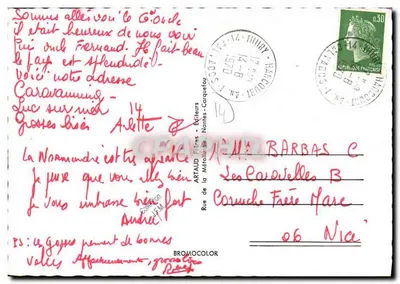 Sommes allés voir le
il était heureux de nous voir
Fernand. Il fait beau
le pays est splendide.
Voici notre adresse
Caravanning
Luc sur mer 14
Grosses bises Arlette
La Normandie est très
je pense que vous allez bien
je vous embrasse bien fort
André
PS: Les gosses pensent de bonnes
Affectueusement, grosses
BROMOCOLOR
ARTAUD Frères - Éditeurs
Rue de la Métallurgie Nantes-Carquefou
THURY-HARCOURT
14-8
1970
0,30
REPUBLIQUE FRANÇAISE
BARBAS C
Les Caravelles B
Corniche Frère Marc
06 Nice